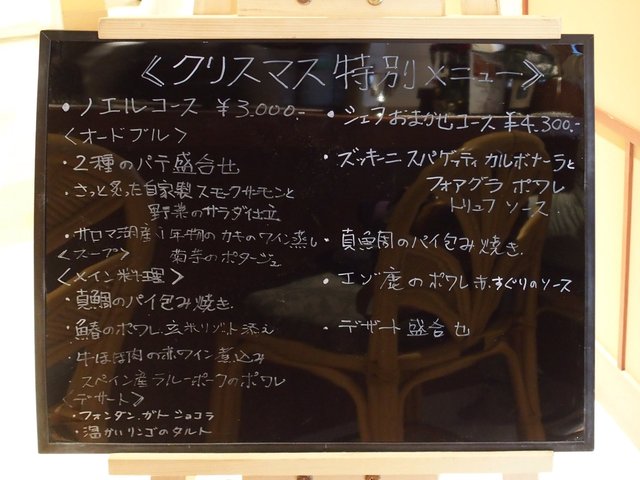 《クリスマス特別メニュー》
・ノエルコース ¥3.000-
<オードブル>
・2種のパテ盛合せ
・さっと炙った自家製スモークサーモンと
野菜のサラダ仕立
・サロマ湖産1年物のカキのワイン蒸し
<スープ> 菊芋のポタージュ
<メイン料理>
・真鯛のパイ包み焼き
・鰆のポワレ 玄米リゾット添え
・牛ほほ肉の赤ワイン煮込み
・スペイン産ラルーポークのポワレ
<デザート>
・フォンダン.ガトーショコラ
・温かいリンゴのタルト
・シェフおまかせコース ¥4.300-
・ズッキーニスパゲッティ カルボナーラと
フォアグラ ポワレ
トリュフ ソース
・真魚周のパイ包み焼き.
・エゾ鹿のポワレ 赤.すぐりのソース
・デザート盛合せ